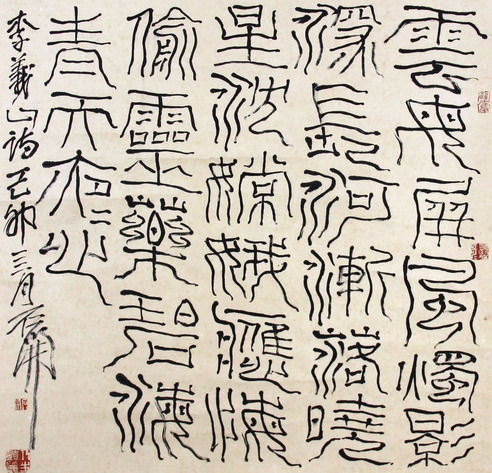 雲母屏風燭影
深長河漸落曉
星沈嫦娥應悔
偷靈藥碧海
青天夜〻心
李義山詩己卯三月石開